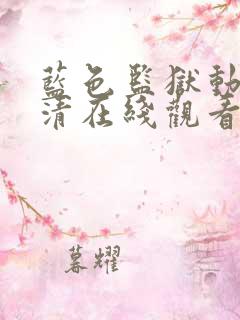 藍色監獄動
清在綫觀看
暮耀